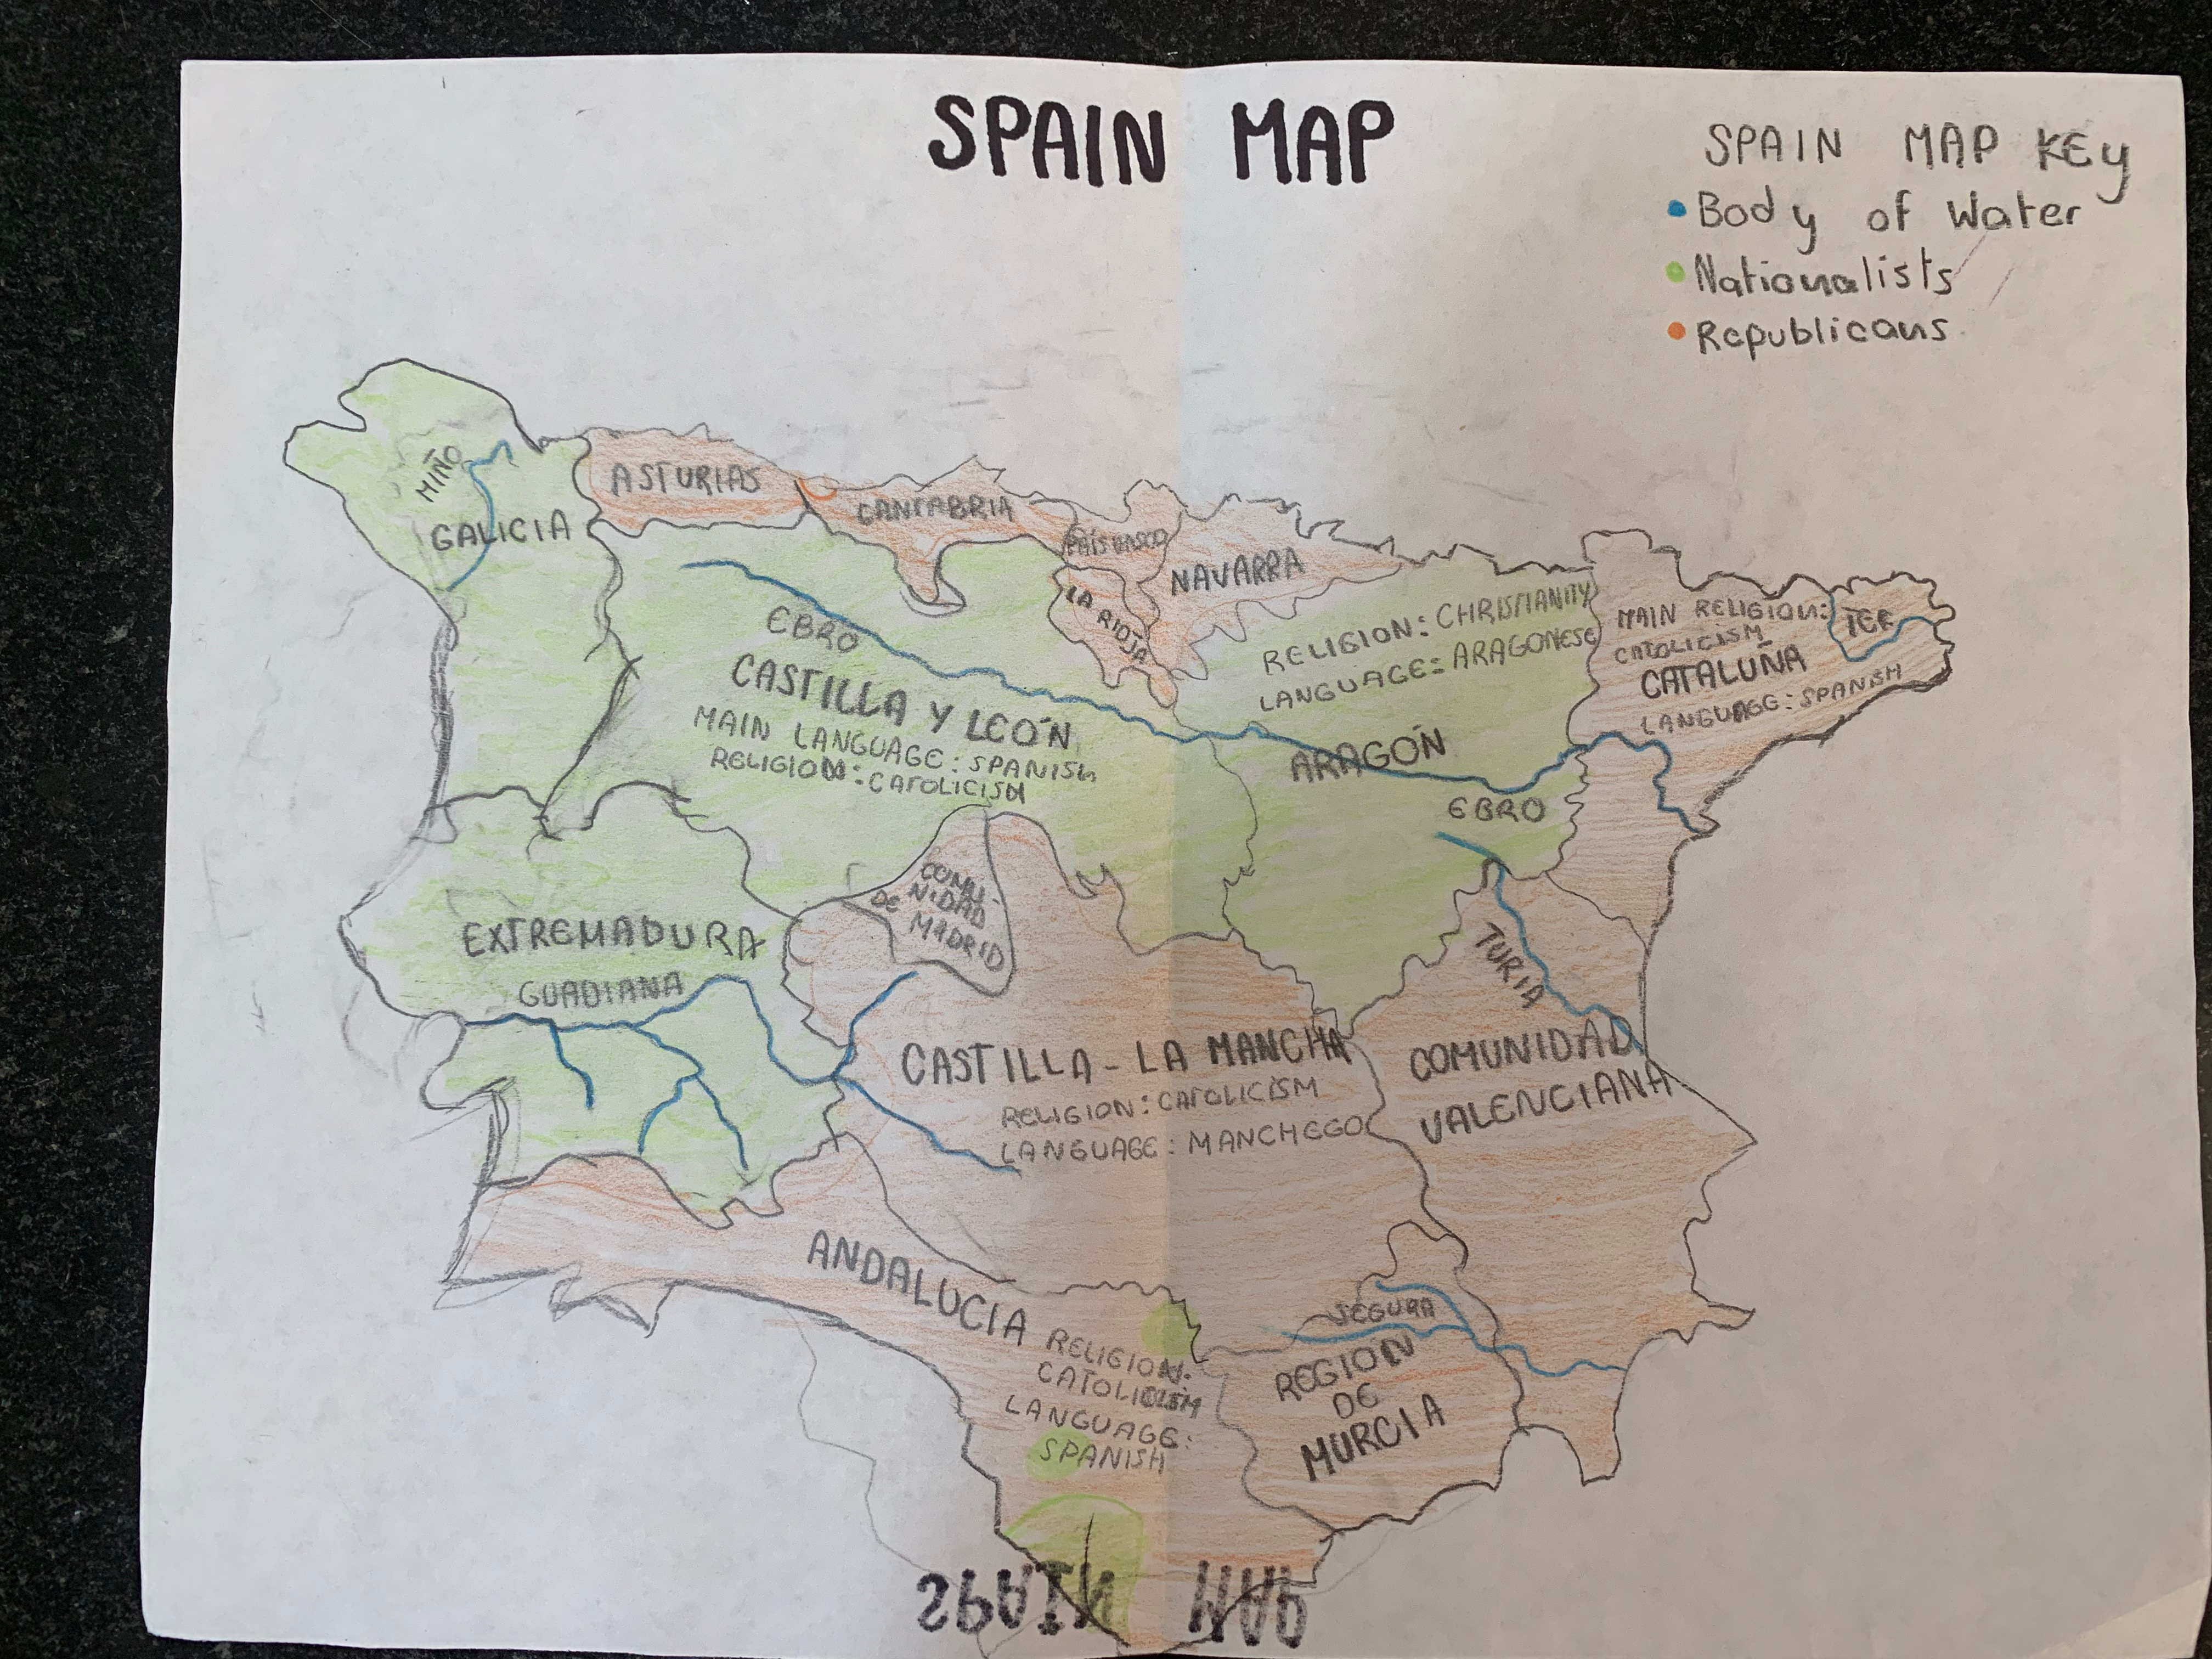 SPAIN MAP
SPAIN MAP KEy
Body of Water
Nationalists
Republicans
MIÑO
GALICIA
ASTURIAS
CANTABRIA
PAÍS VASCO
NAVARRA
LA RIOJA
EBRO
CASTILLA Y LEÓN
MAIN LANGUAGE: SPANISH
RELIGION: CATOLICISM
RELIGION: CHRISTIANITY
LANGUAGE: ARAGONESE
ARAGÓN
EBRO
MAIN RELIGION:
CATOLICISM
TER
CATALUÑA
LANGUAGE: SPANISH
COMU-
NIDAD
DE MADRID
EXTREMADURA
GUADIANA
TURIA
CASTILLA - LA MANCHA
RELIGION: CATOLICISM
LANGUAGE: MANCHEGO
COMUNIDAD
VALENCIANA
ANDALUCIA
RELIGION:
CATOLICISM
LANGUAGE:
SPANISH
SEGURA
REGION
DE
MURCIA
SPAIN MAP